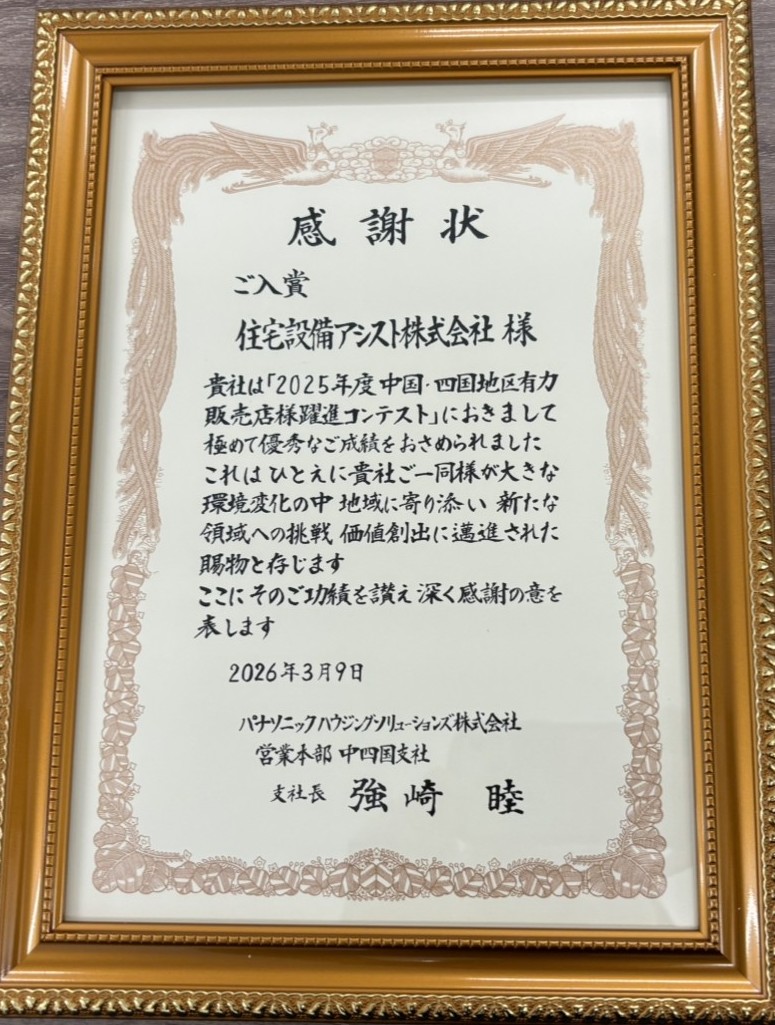 感謝状
ご入賞
住宅設備アシスト株式会社 様
貴社は「2025年度 中国・四国地区有力
販売店様躍進コンテスト」におきまして
極めて優秀なご成績をおさめられました
これは ひとえに貴社ご一同様が大きな
環境変化の中 地域に寄り添い 新たな
領域への挑戦 価値創出に邁進された
賜物と存じます
ここに そのご功績を讃え 深く感謝の意を
表します
2026年3月9日
パナソニック ハウジングソリューションズ株式会社
営業本部 中四国支社
支社長 強崎 睦